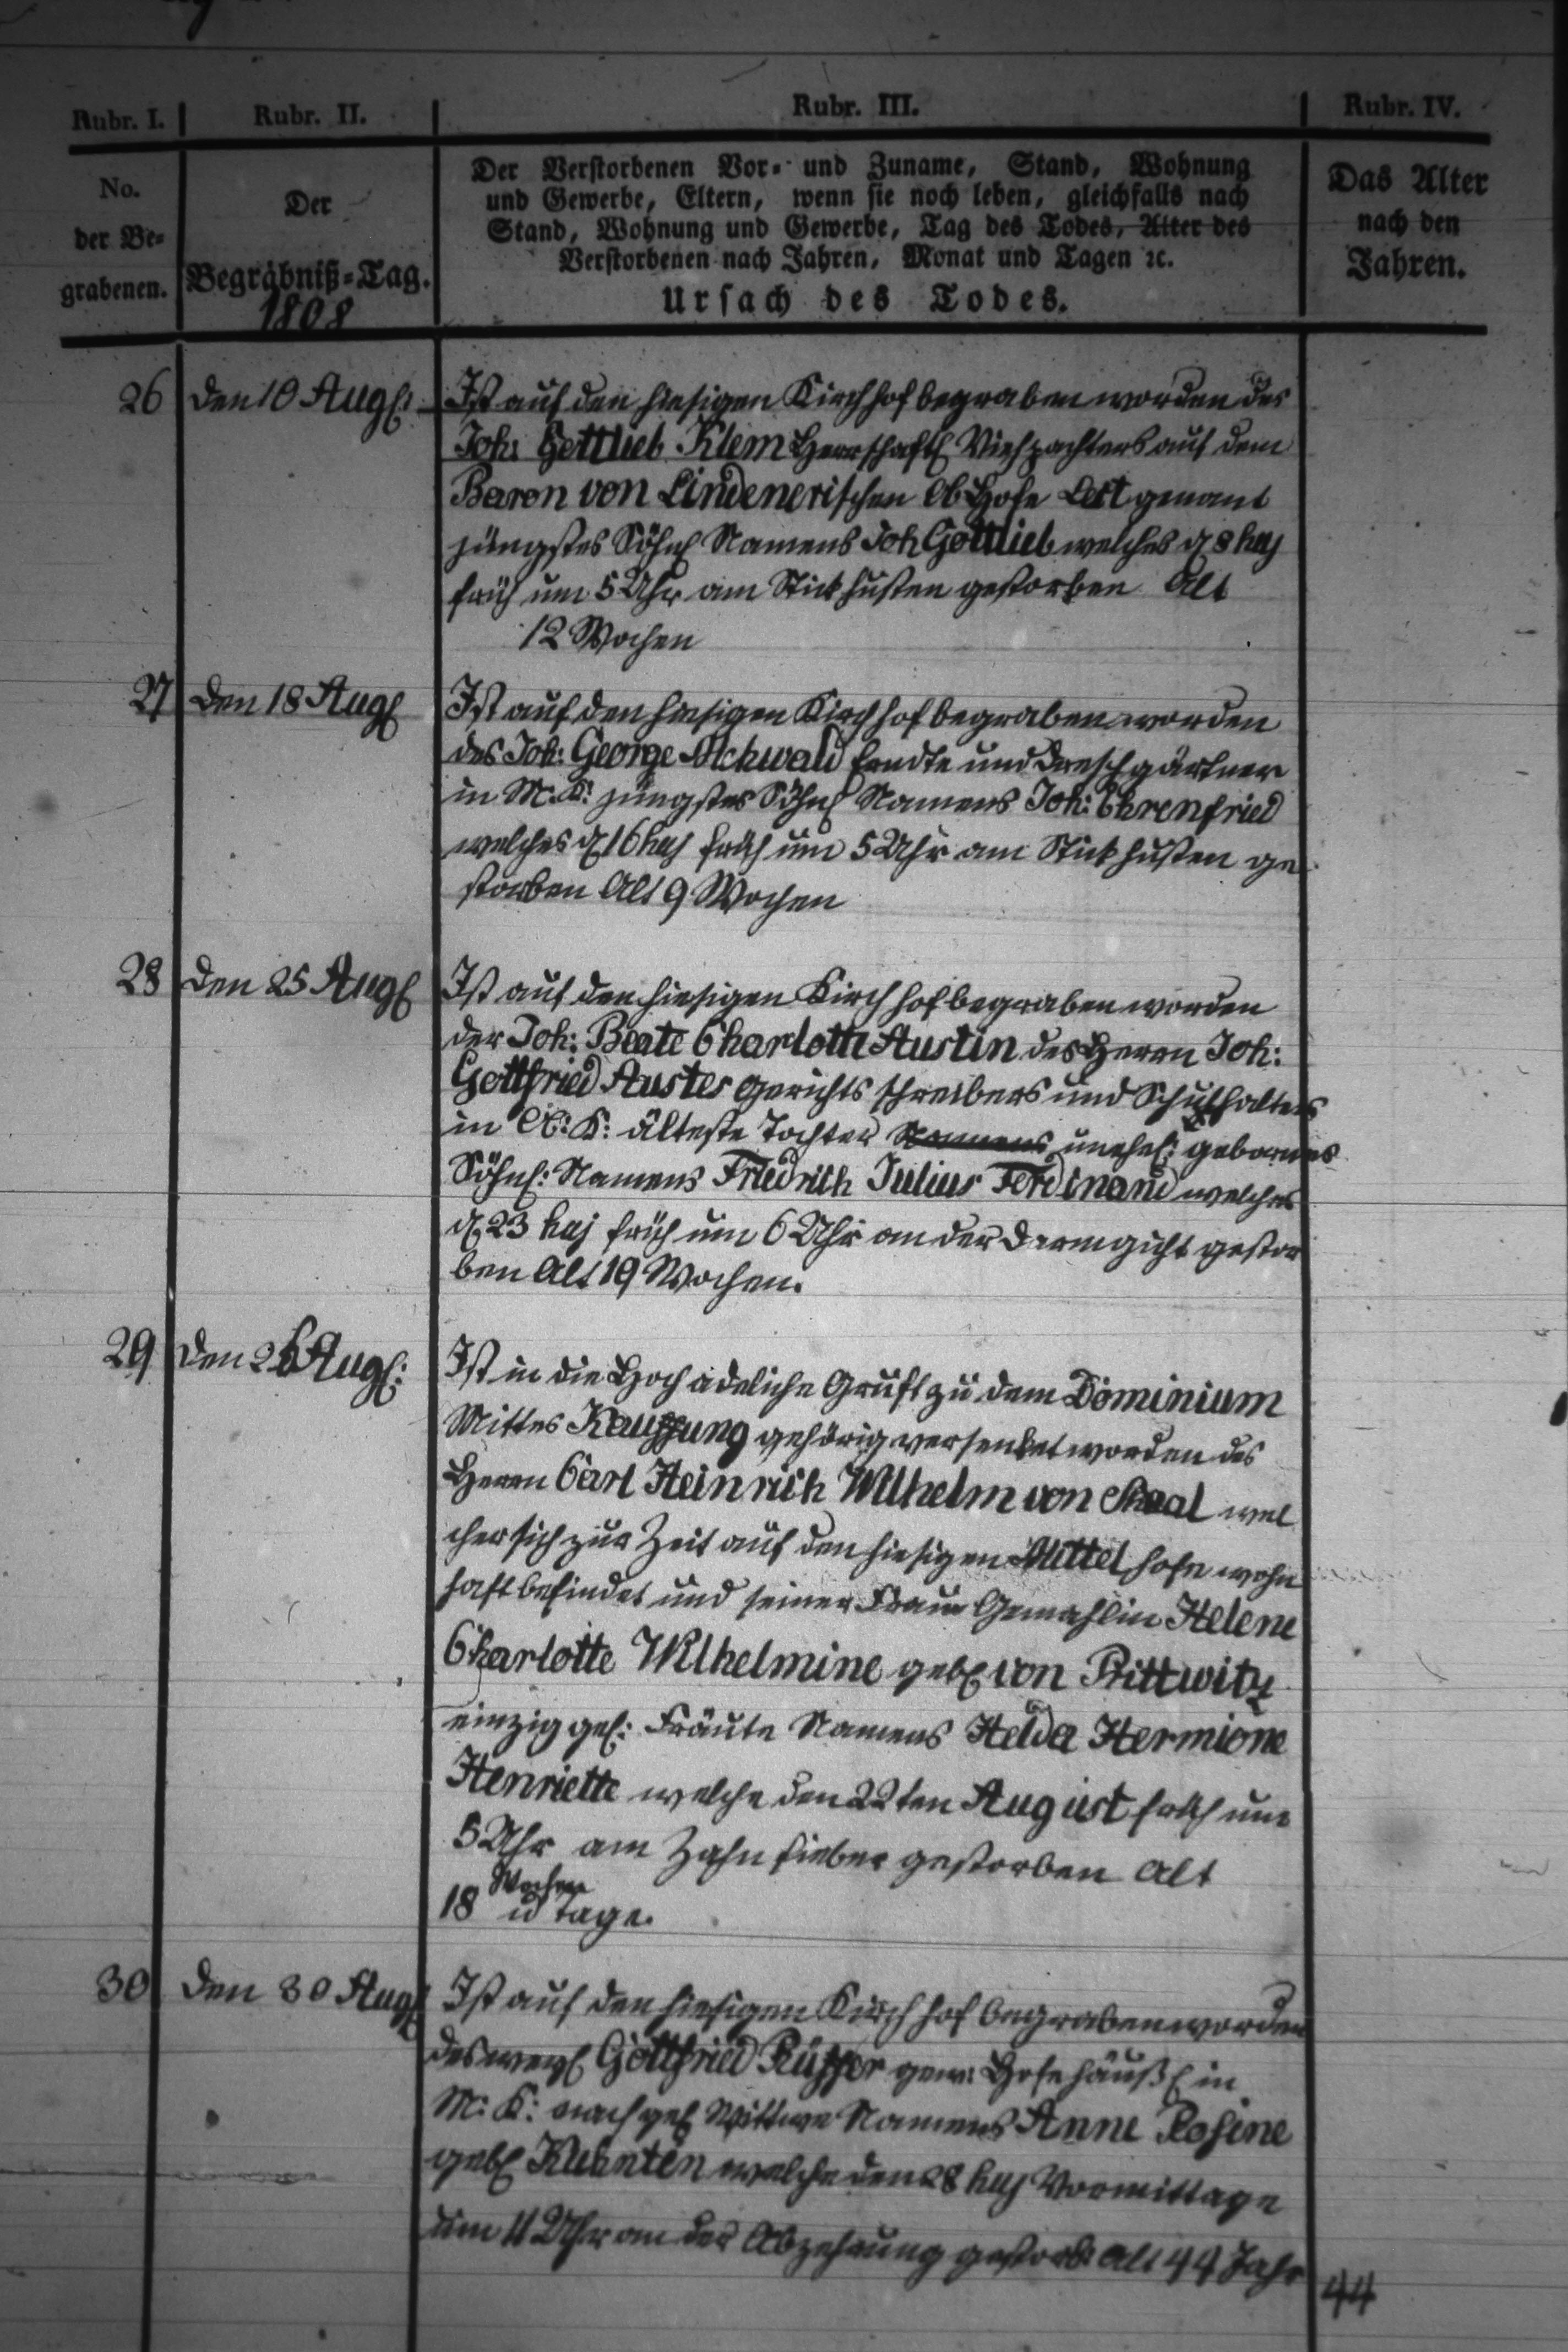 Rubr. I.
Rubr. II.
Rubr. III.
Rubr. IV.
No.
der Be=
grabenen.
Der
Begräbniß=Tag.
1808
Der Verstorbenen Vor= und Zuname, Stand, Wohnung
und Gewerbe, Eltern, wenn sie noch leben, gleichfalls nach
Stand, Wohnung und Gewerbe, Tag des Todes, Alter des
Verstorbenen nach Jahren, Monat und Tagen ꝛc.
Ursach des Todes.
Das Alter
nach den
Jahren.
26
den 10 Aug:
Ist auf den hiesigen Kirchhof begraben worden des
Joh: Gottlieb Klem Herrschaftl Viehpachters auf dem
Baron von Lindenerischen Hofe genant
jüngstes Söhnl Namens Joh Gottlieb welches d 8 huj
früh um 5 Uhr am Stickhusten gestorben Alt
12 Wochen
27
den 18 Aug
Ist auf den hiesigen Kirchhof begraben worden
des Joh: George und Dreschgärtner
in M. K: jüngstes Söhnl Namens Joh: Ehrenfried
welches d 16 huj früh um 5 Uhr am Stickhusten ge
storben Alt 9 Wochen
28
den 25 Aug
Ist auf den hiesigen Kirchhof begraben worden
der Joh: Beate Charlotte Austin des Herrn Joh:
Gottfried Austes Gerichtsschreibers und Schulhalters
in K: älteste Tochter Namens unehel: gebornes
Söhnl: Namens Friedrich Julius Ferdinand welches
d 23 huj früh um 6 Uhr an der Darmgicht gestor
ben Alt 19 Wochen.
29
den 26 Aug:
Ist in die Hochadeliche Gruft zu dem Dominium
Mittel Kauffung gehörig versenket worden des
Herrn Carl Heinrich Wilhelm von wel
cher sich zur Zeit auf den hiesigen Mittel hofe wohn
haft befindet und seiner Frau Gemahlin Helene
Charlotte Wilhelmine geb von Prittwitz
einzig gel: Fräule Namens Helda Hermione
Henriette welche den 22ten August früh um
5 Uhr am Zahnfieber gestorben Alt
18 Wochen u Tage.
30
den 30 Aug
Ist auf den hiesigen Kirchhof begraben worden
des weyl Gottfried gew: Hofehäußl in
M: K: nachgel Wittwe Namens Anne Rosine
geb welche den 28 huj Vormittage
um 11 Uhr an der Abzehrung gestorb: Alt 44 Jahr
44